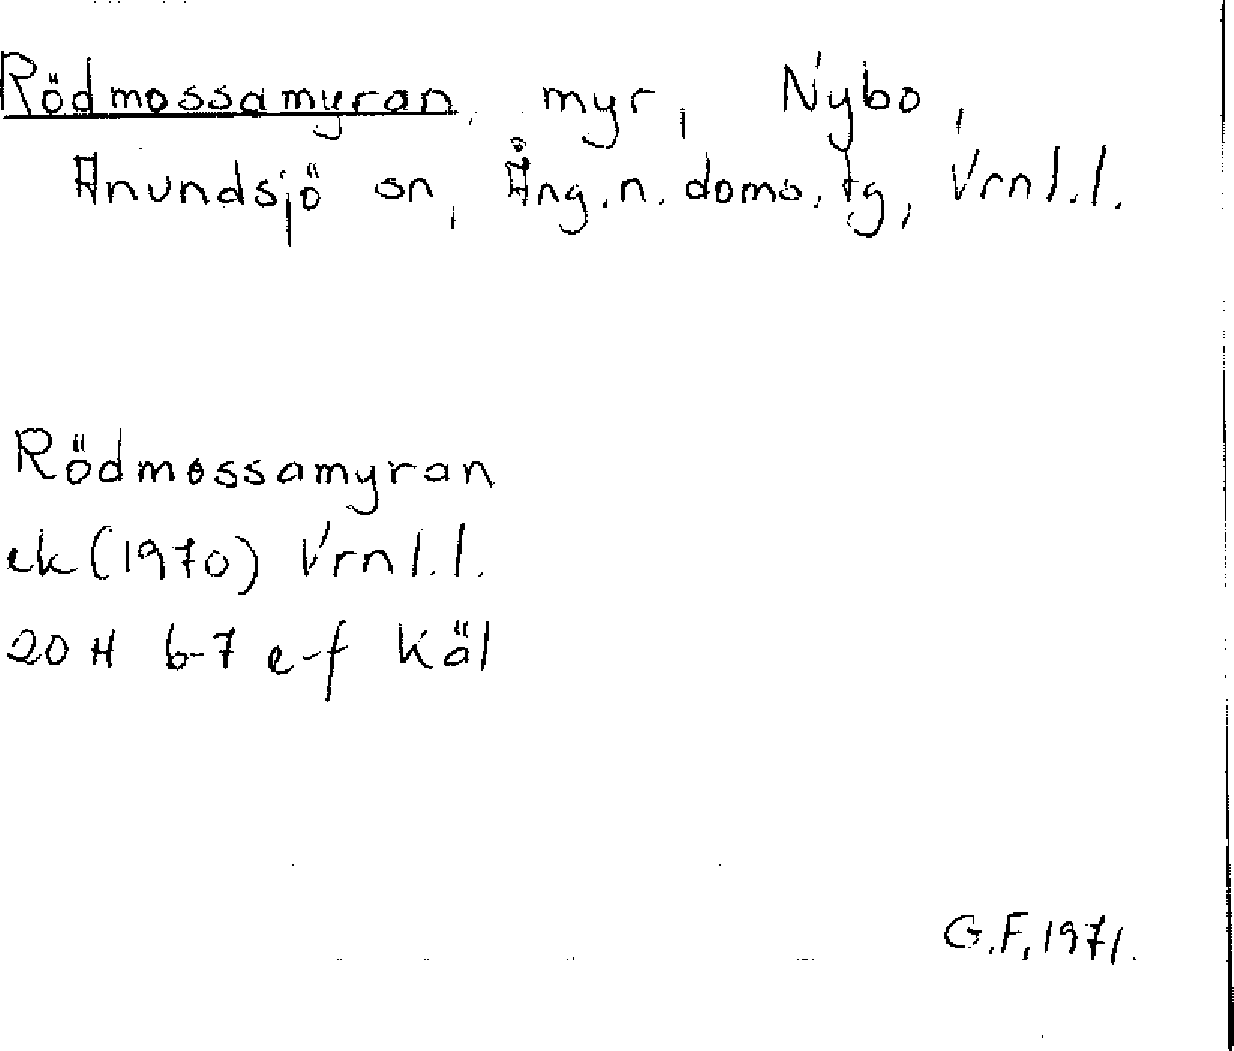 Rödmossamyran, myr, Nybo,
Anundsjö sn, Ång.n.doms.tg, Vrnl.l.
Rödmossamyran
ek (1970) Vrnl.l.
20 H 6-7 e-f Käl
G.F. 1971.